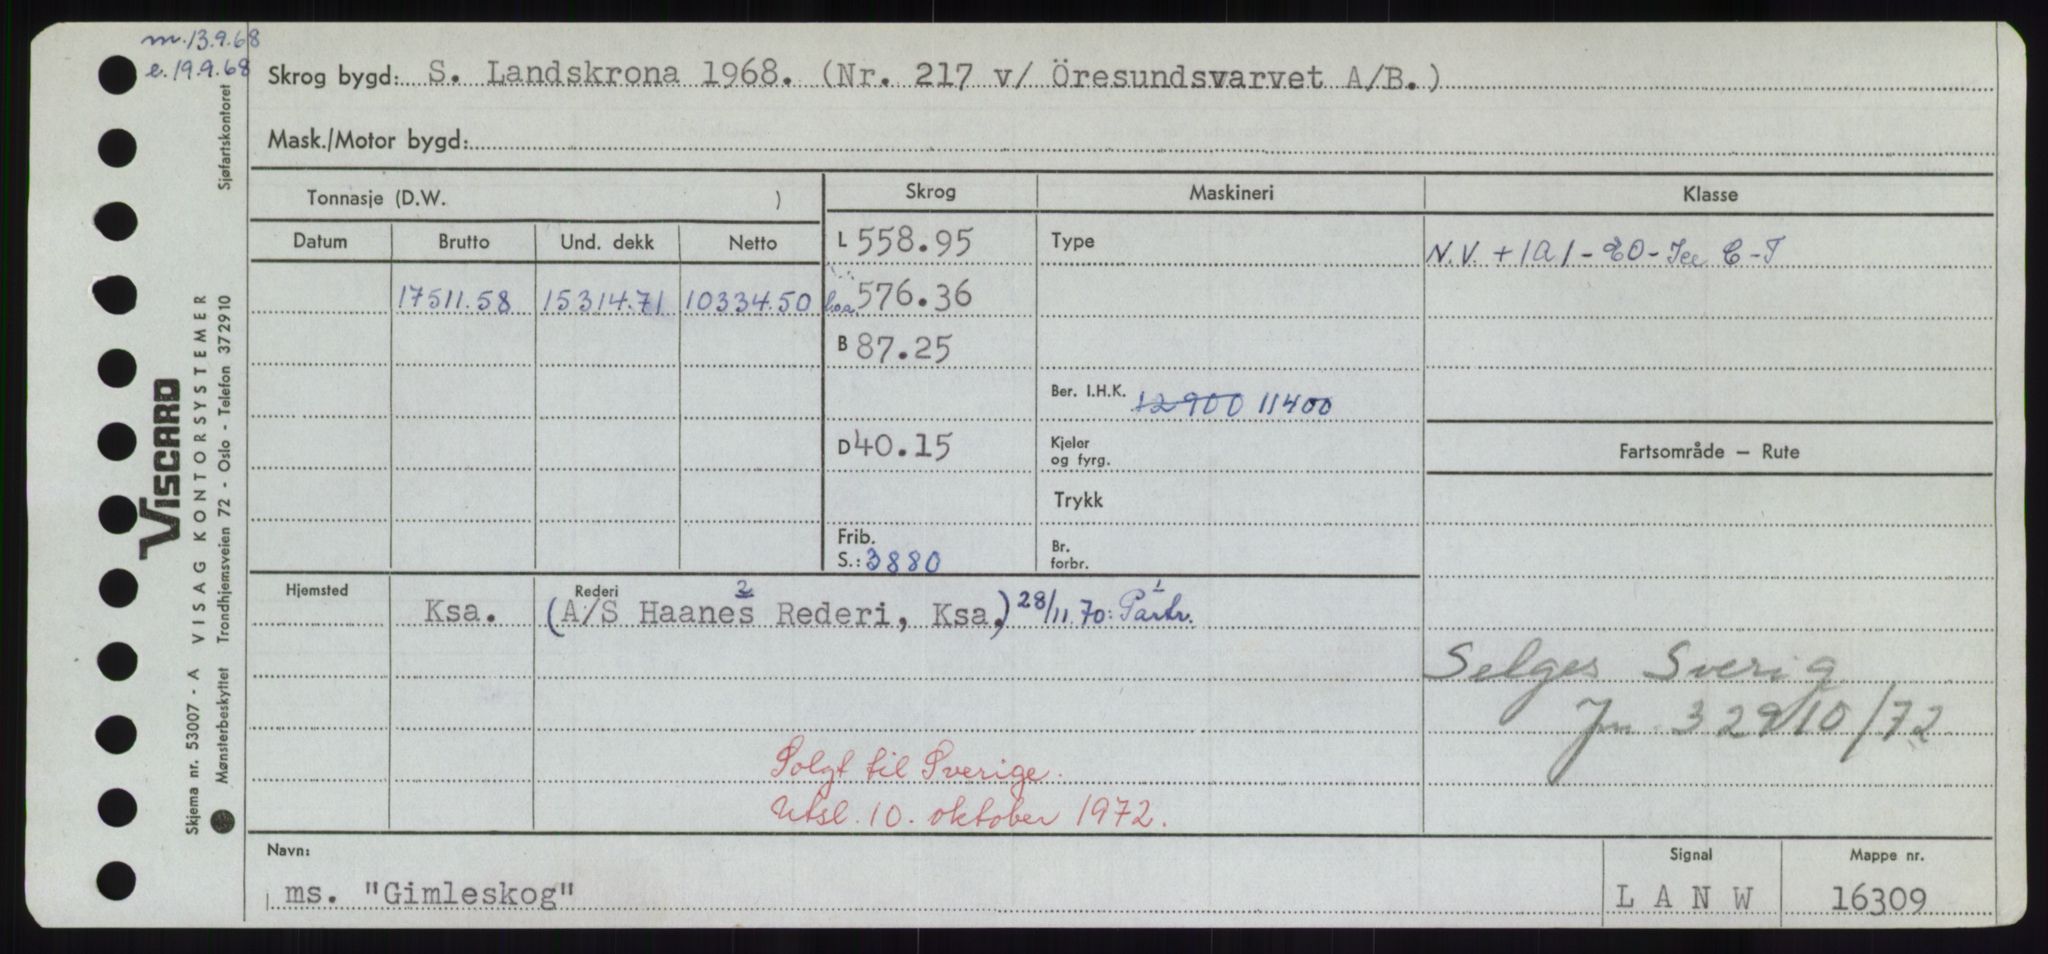 m. 13.9.68
e. 19.9.68
Skrog bygd: S. Landskrona 1968. (Nr. 217 v/ Öresundsvarvet A/B.)
Mask./Motor bygd:
Tonnasje (D.W. )
Skrog
Maskineri
Klasse
Datum
Brutto
Und. dekk
Netto
L 558.95
Type
N.V. + 1A1 - EO - Ice C - T
17511.58
15314.71
10334.50
l.oa. 576.36
B 87.25
Ber. I.H.K. 12900 11400
D 40.15
Kjeler
og fyrg.
Fartsområde — Rute
Trykk
Frib.
S.: 3880
Br.
forbr.
Hjemsted
Rederi
Ksa.
(A/S Haanes 2 Rederi, Ksa.) 28/11.70: Partr. 1
Selges Sverig
Jn 32910/72
Solgt til Sverige.
Utsl. 10. oktober 1972.
Navn:
ms. "Gimleskog"
Signal
L A N W
Mappe nr.
16309
Sjøfartskontoret
VISCARD
VISAG KONTORSYSTEMER
Trondhjemsveien 72 - Oslo - Telefon 372910
Skjema nr. 53007 - A
Mønsterbeskyttet